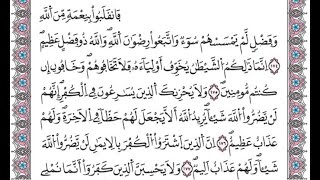 فَانقَلَبُوا۟ بِنِعْمَةٍ مِّنَ ٱللَّهِ
وَفَضْلٍ لَّمْ يَمْسَسْهُمْ سُوٓءٌ وَٱتَّبَعُوا۟ رِضْوَٰنَ ٱللَّهِ وَٱللَّهُ ذُو فَضْلٍ عَظِيمٍ
إِنَّمَا ذَٰلِكُمُ ٱلشَّيْطَٰنُ يُخَوِّفُ أَوْلِيَآءَهُۥ فَلَا تَخَافُوهُمْ وَخَافُونِ إِن
كُنتُم مُّؤْمِنِينَ وَلَا يَحْزُنكَ ٱلَّذِينَ يُسَٰرِعُونَ فِى ٱلْكُفْرِ إِنَّهُمْ
لَن يَضُرُّوا۟ ٱللَّهَ شَيْـًٔا يُرِيدُ ٱللَّهُ أَلَّا يَجْعَلَ لَهُمْ حَظًّا فِى ٱلْءَاخِرَةِ وَلَهُمْ
عَذَابٌ عَظِيمٌ إِنَّ ٱلَّذِينَ ٱشْتَرَوُا۟ ٱلْكُفْرَ بِٱلْإِيمَٰنِ لَن يَضُرُّوا۟ ٱللَّهَ
شَيْـًٔا وَلَهُمْ عَذَابٌ أَلِيمٌ وَلَا يَحْسَبَنَّ ٱلَّذِينَ كَفَرُوٓا۟ أَنَّمَا نُمْلِى